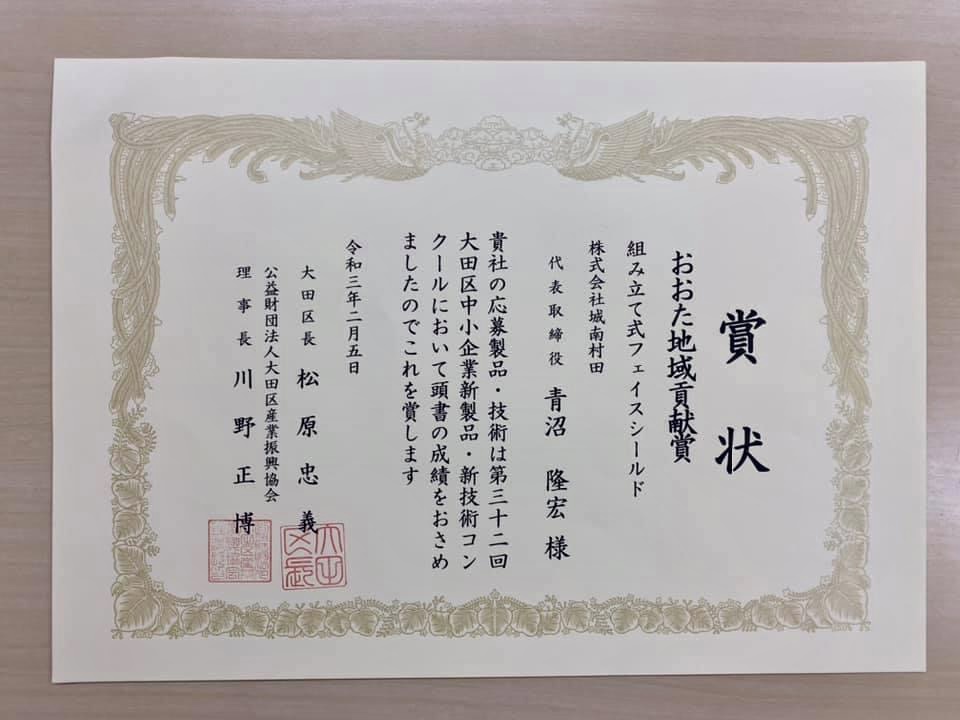 賞状
おおた地域貢献賞
組み立て式フェイスシールド
株式会社城南村田
代表取締役 青沼 隆宏 様
貴社の応募製品・技術は第三十二回
大田区中小企業新製品・新技術コン
クールにおいて頭書の成績をおさめ
ましたのでこれを賞します
令和三年二月五日
大田区長 松原忠義
公益財団法人大田区産業振興協会
理事長 川野正博
大田区長